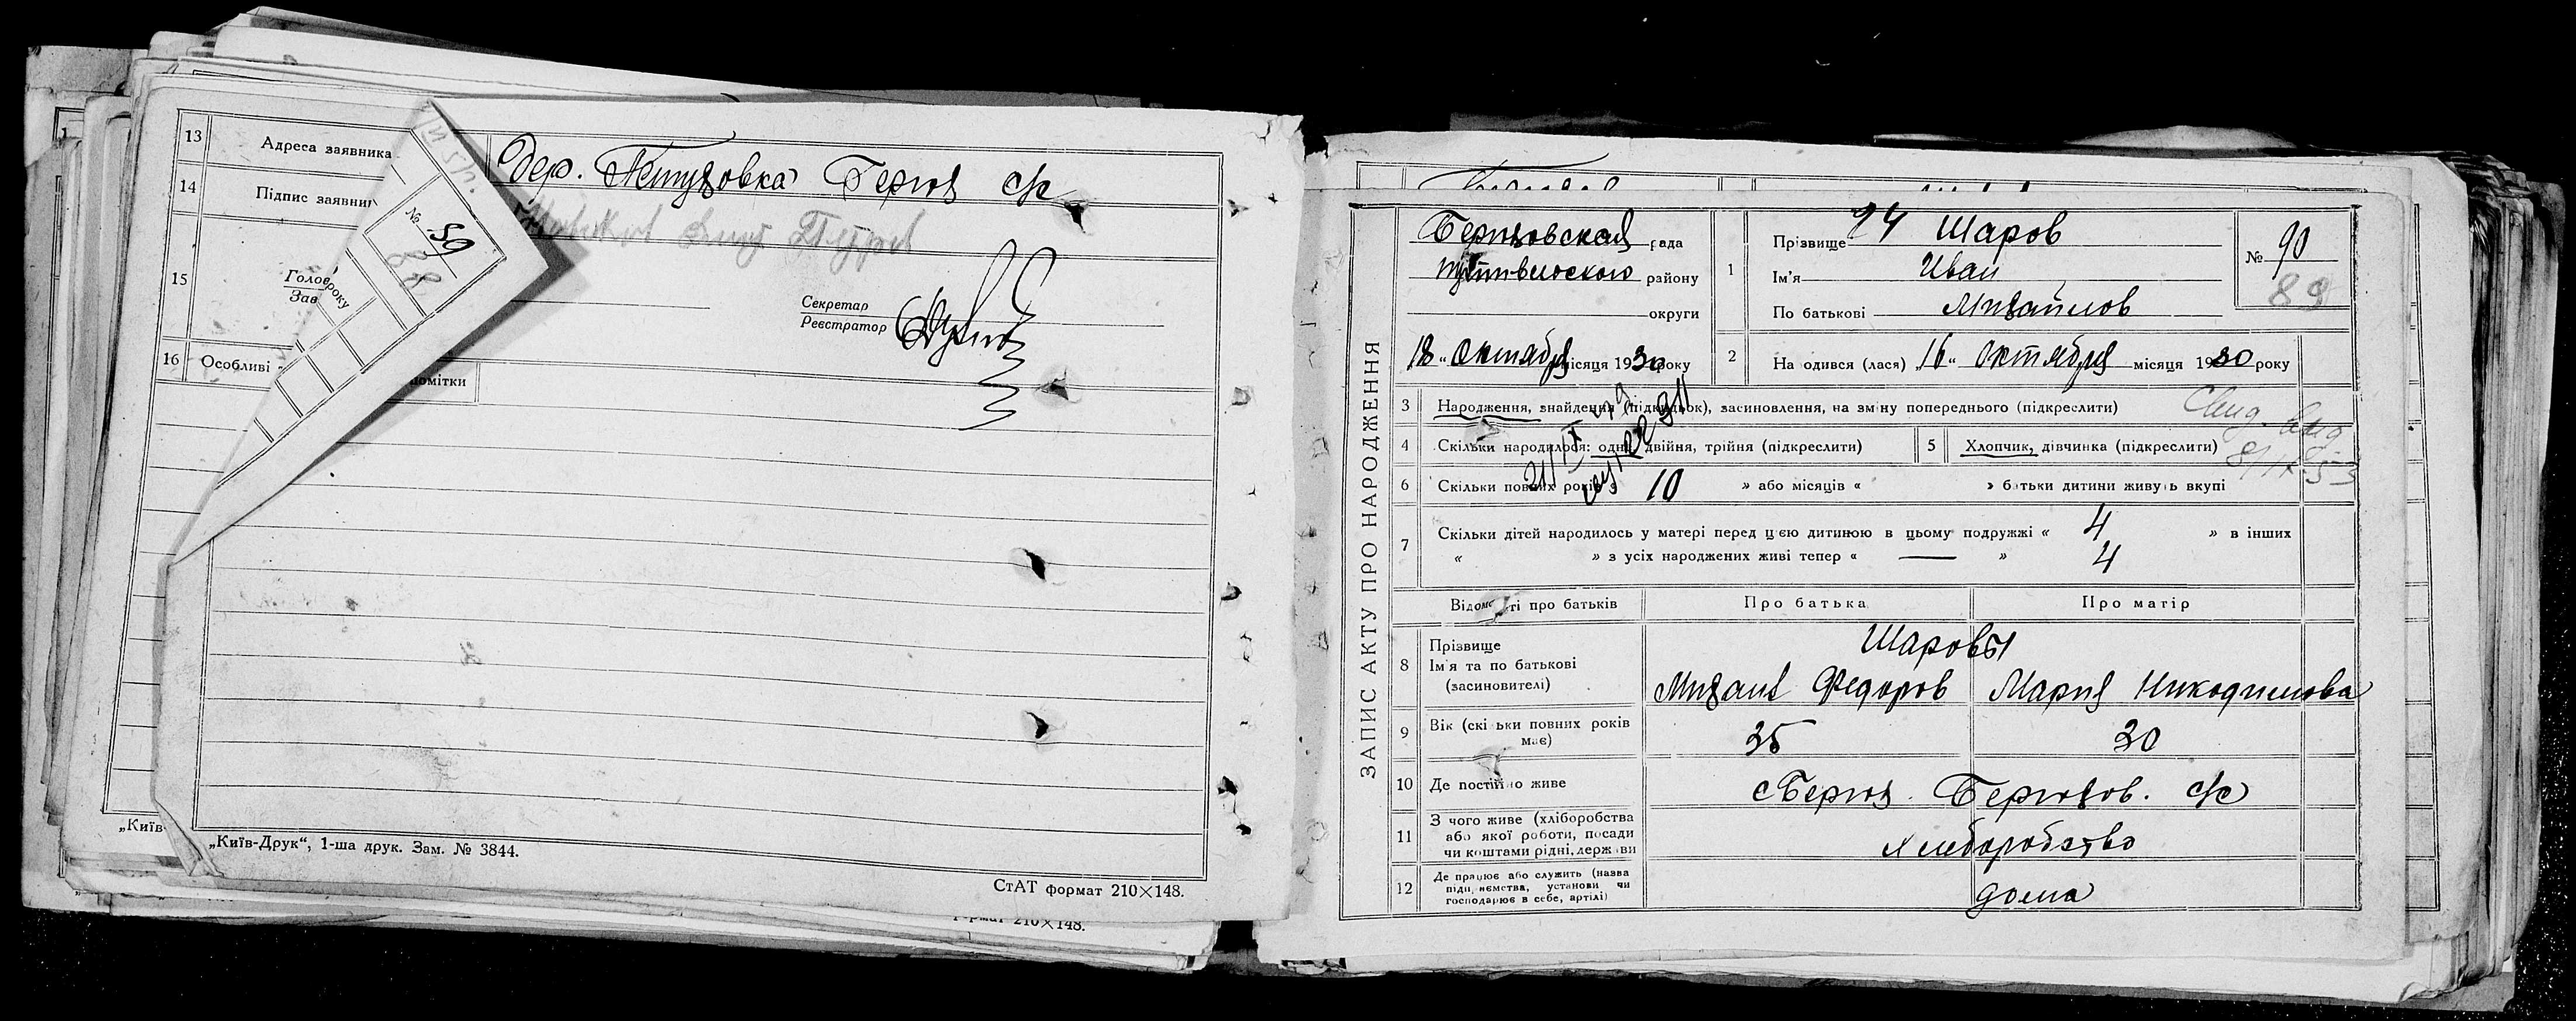 13 Адреса заявника дер. Пітузовка Берюх с/с
14 Підпис заявни
№ 59
88
15
Голов року
Зав
Секретар
Реєстратор
16 Особливі помітки
„Київ-Друк“, 1-ша друк. Зам. № 3844.
СтАТ формат 210×148.
„Київ-
формат 210×148.
ЗАПИС АКТУ ПРО НАРОДЖЕННЯ
рада
району
округи
18 “ Октября місяця 1930 року
1 Прізвище 94 Шаров
Ім'я Иван
По батькові Михайлов
№ 90
89
2 На одився (лася) „16“ Октября місяця 1930 року
3 Народження, знайдення (підкидьок), засиновлення, на зміну попереднього (підкреслити)
4 Скільки народилося: одна, двійня, трійня (підкреслити)
5 Хлопчик, дівчинка (підкреслити)
6 Скільки повних років » 10 » або місяців « » батьки дитини живуть вкупі
7 Скільки дітей народилось у матері перед цією дитиною в цьому подружжі « 4 » в інших
« » з усіх народжених живі тепер « — » 4
Відомості про батьків Про батька Про матір
8 Прізвище
Ім'я та по батькові
(засиновителі)
Шаровы
Михаил Федоров Мария Никодимова
9 Вік (скільки повних років має) 35 30
10 Де постійно живе с Берюх. Берюхов. с/с
11 З чого живе (хліборобства
або якої роботи, посади
чи коштами рідні, держави
Хлеборобство
12 Де працює або служить (назва
підприємства, установи чи
господарює в себе, артілі)
дома